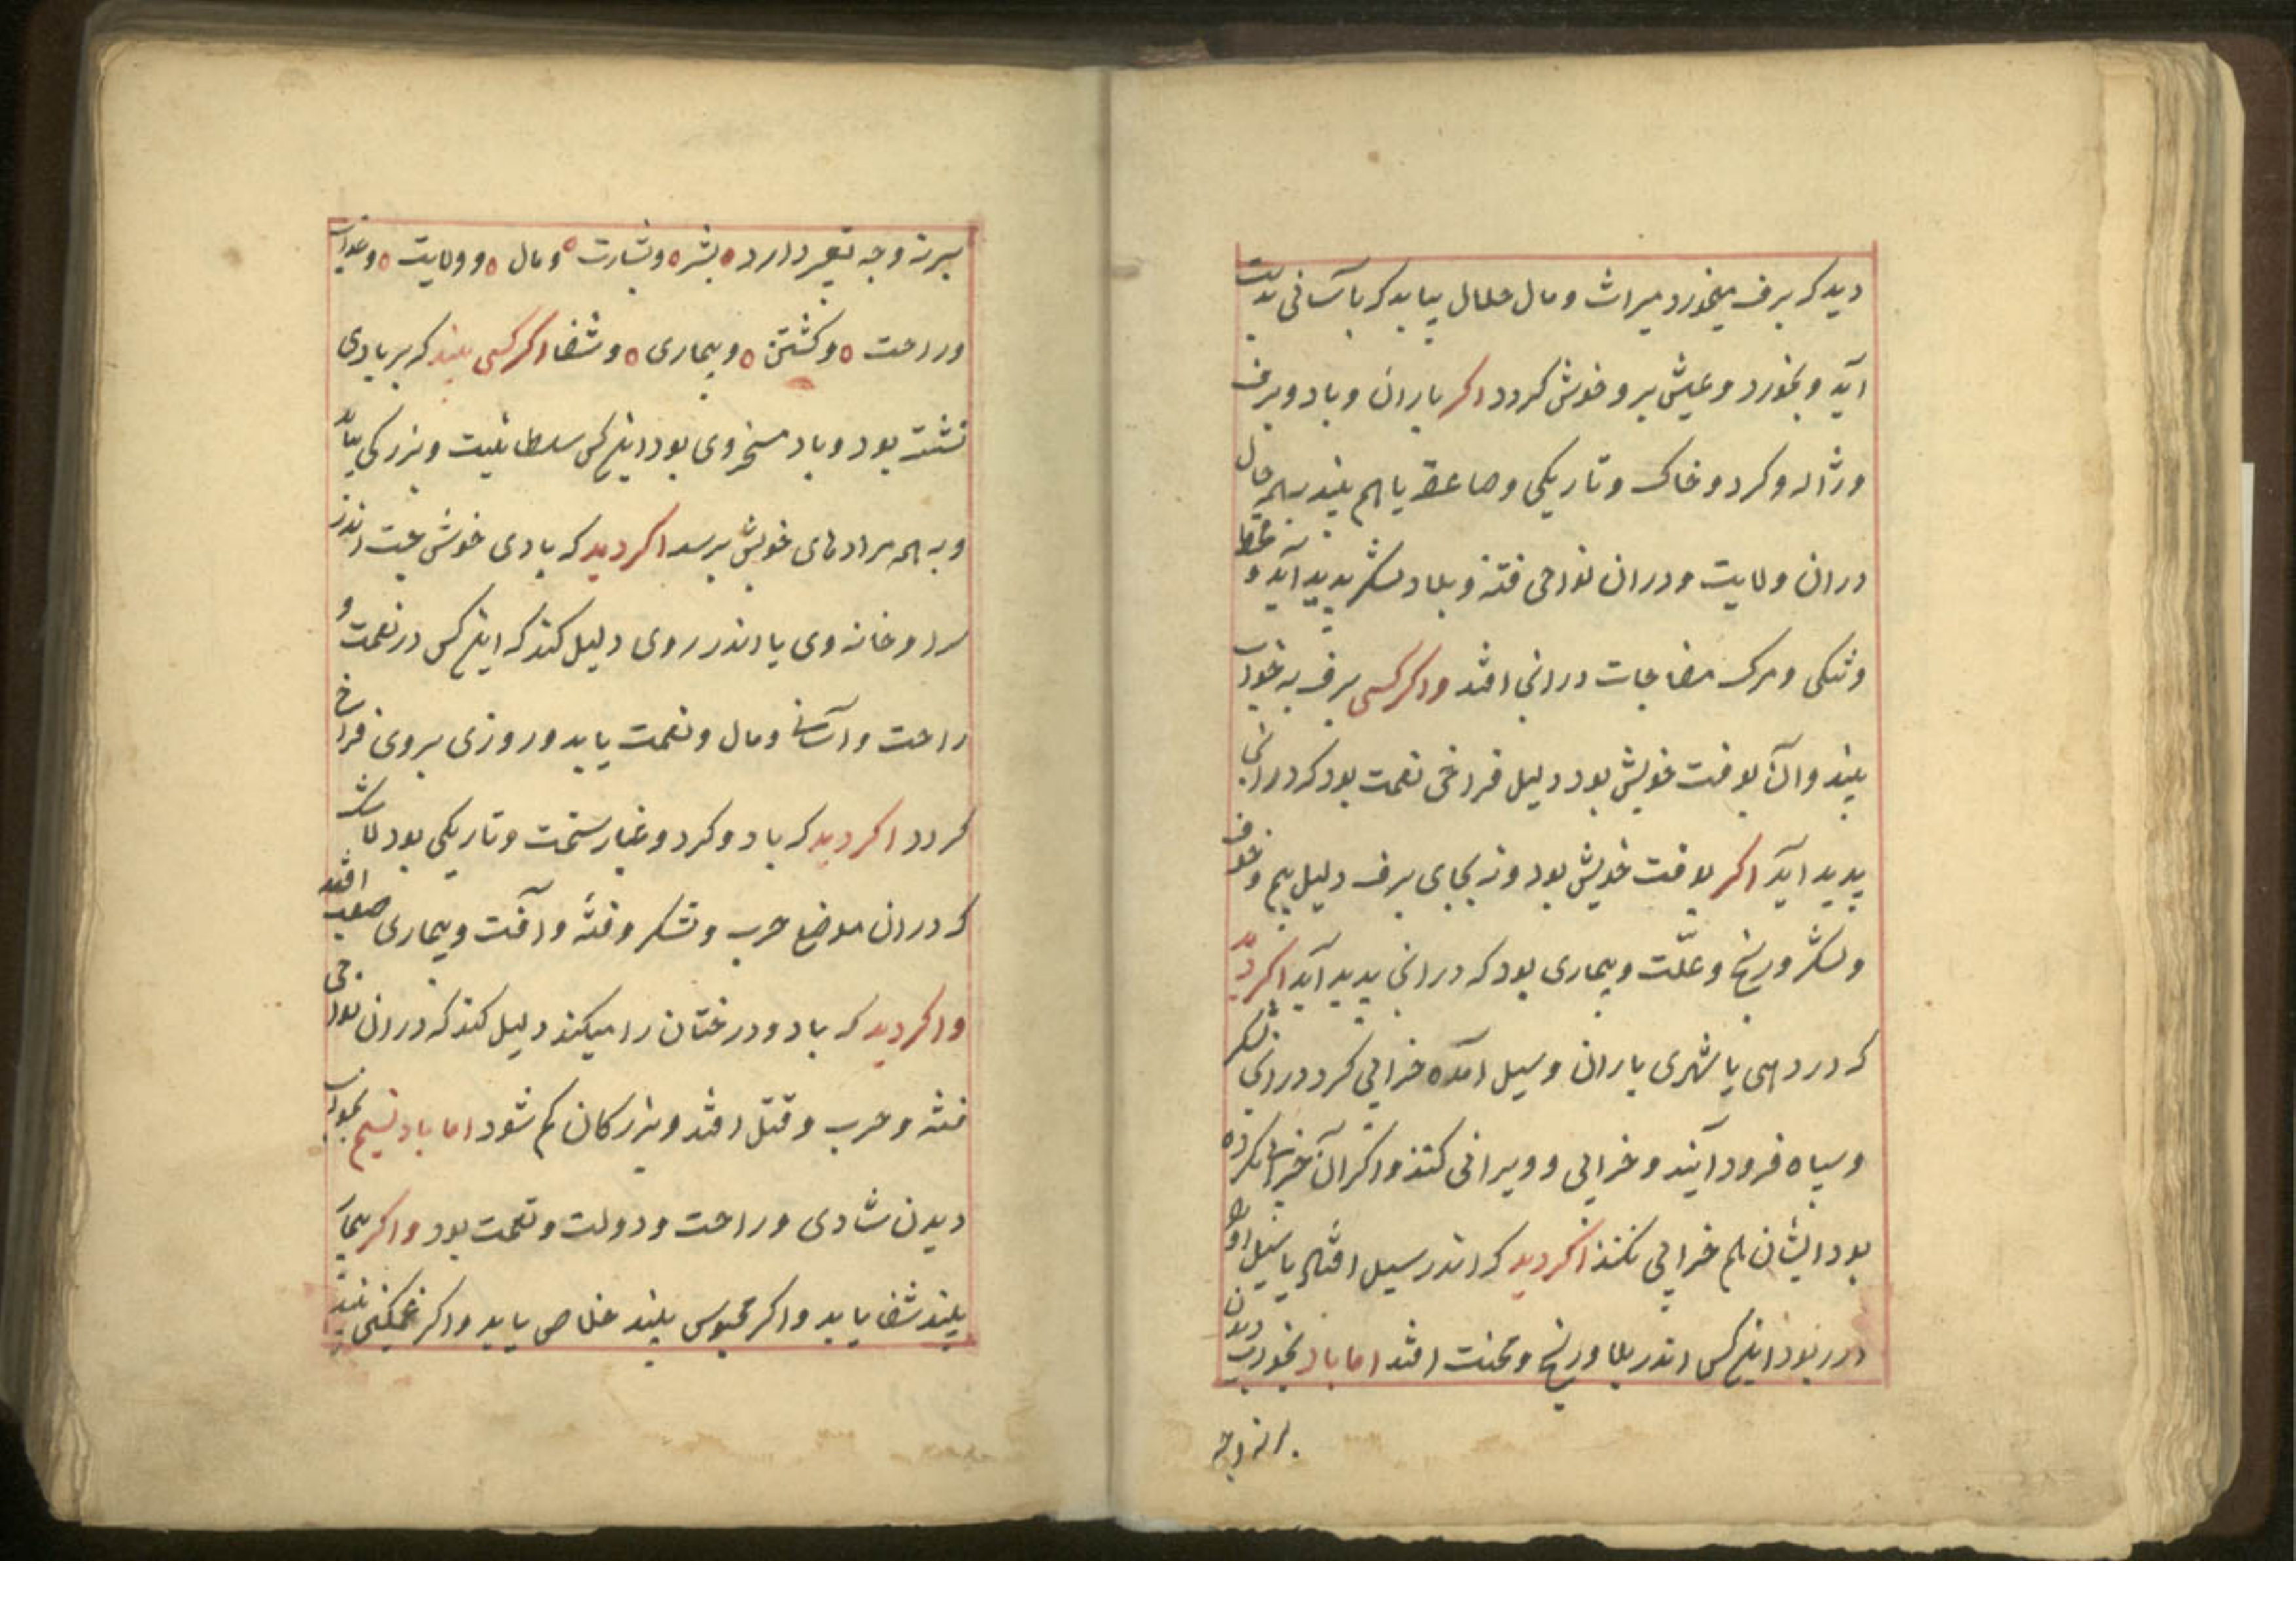 دید که برف میخورد میراث و مال حلال بیابد که بآسانی بدست
آید و بخورد و عیش برو خوش گردد اکر باران و باد و برف
و ژاله و کرد و خاک و تاریکی و صاعقه باهم بیند بهمه حال
دران ولایت و دران نواحی فتنه و بلا و لشکر پدید آید و قحط
و تنکی و مرک مفاجات درانجا افتد واکر کسی برف به خواب
بیند و آن بوقت خویش بود دلیل فراخی نعمت بود که درانجا
پدید آید اکر بوقت خویش بود و نه بجای برف دلیل بیم و خوف
و لشکر و رنج و علّت و بیماری بود که درانجا پدید آید اکر دید
که در دهی یا شهری باران و سیل آمده خرابی کرد درانجا لشکر
و سپاه فرود آیند و خرابی و ویرانی کنند و اکر آن خرابی نکرده
بود ایشان هم خرابی نکنند اکر دید که اندر سیل افتاد یا سیل او را
در ربود اینکس اندر بلا و رنج و محنت افتد اما باد بخواب دیدن
بر نه وجه
بر نه وجه تعبیر دارد بشر و بشارت و مال و ولایت و عذاب
و راحت و کشتن و بیماری و شفا اکر کسی بیند که بر بادی
نشسته بود و باد مسخر وی بود اینکس سلطانیت و بزرکی بیابد
و به همه مرادهای خویش برسد اکر دید که بادی خوش بجست اندر
سرا و خانه وی یا اندر روی دلیل کند که اینکس در نعمت و
راحت و آسانی و مال و نعمت یابد و روزی بروی فراخ
کردد اکر دید که باد و کرد و غبار سخت و تاریکی بود
که دران موضع حرب و لشکر و فتنه و آفت و بیماری صعب افتد
واکر دید که باد درختان را میکند دلیل کند که دران نواحی
فتنه و حرب و قتل افتد و بزرکان کم شود اما باد نسیم بخواب
دیدن شادی و راحت و دولت و نعمت بود واکر بیمار
بیند شفا یابد واکر محبوس بیند خلاص یابد واکر غمکینی بیند